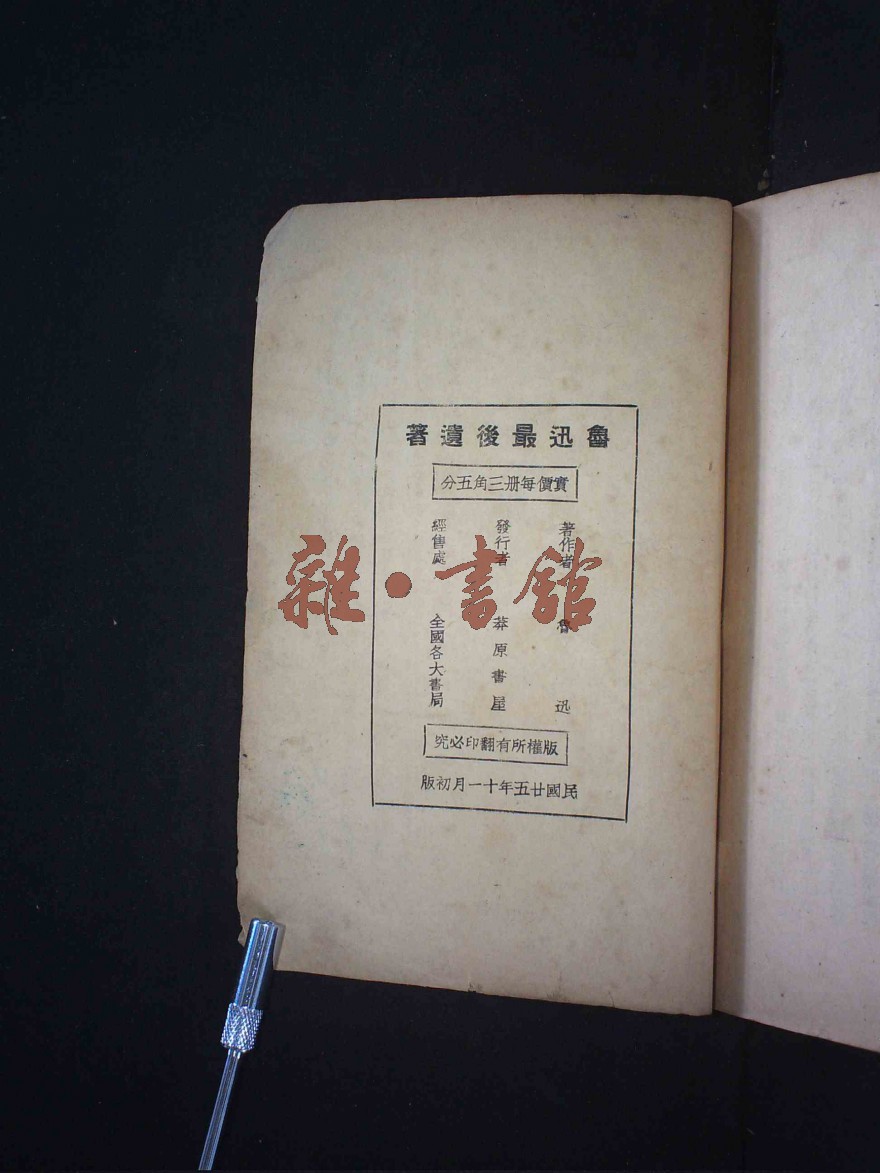 魯迅最後遺著
實價每册三角五分
著作者 魯迅
發行者 莽原書屋
經售處 全國各大書局
版權所有翻印必究
民國廿五年十一月初版
雜·書館